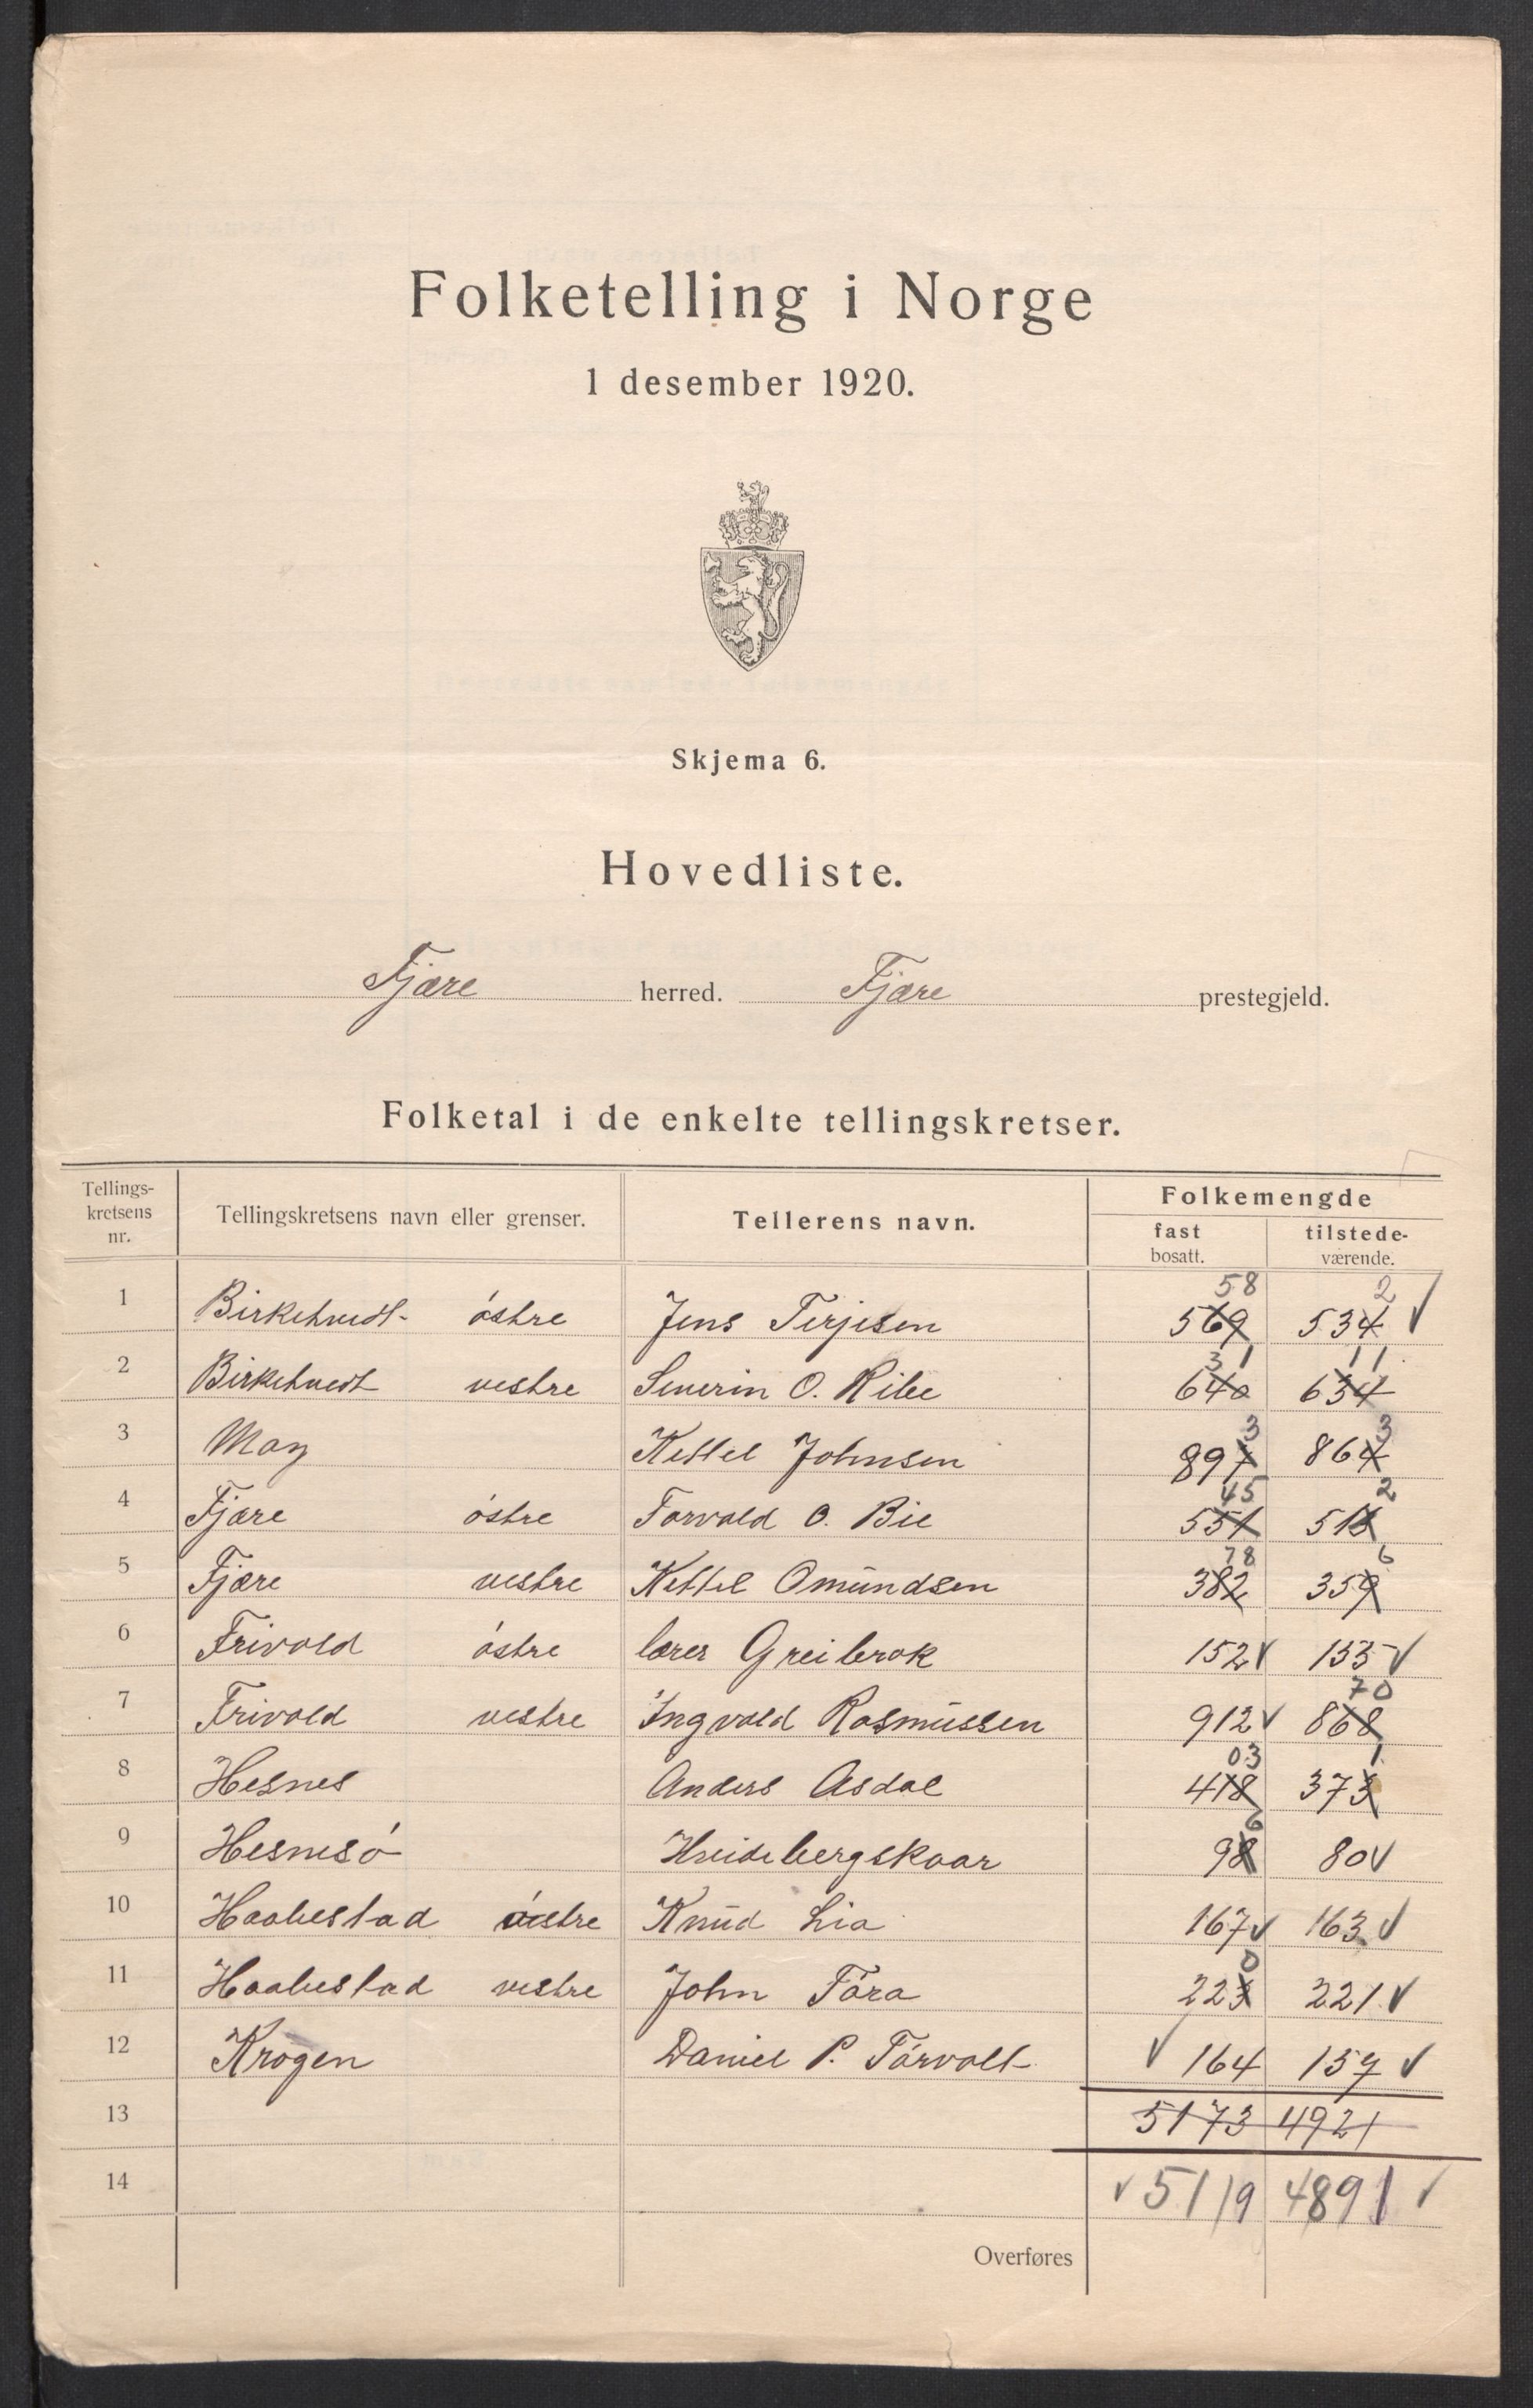 Folketelling i Norge
1 desember 1920.
Skjema 6.
Hovedliste.
Fjære herred. Fjære prestegjeld.
Folketal i de enkelte tellingskretser.
Tellings-
kretsens
nr.
Tellingskretsens navn eller grenser.
Tellerens navn.
Folkemengde
fast
bosatt.
tilstede-
værende.
58 2
1 Birketvedt- østre Jens Terjesen 569 534 ✓
31 11
2 Birketvedt vestre Severin O. Ribe 640 634
3 3
3 Moy Kettel Johnsen 897 864
45 2
4 Fjære østre Torvald O. Bie 551 513
78 6
5 Fjære vestre Kettel Omundsen 382 359
6 Frivold østre lærer Greibrok 152 ✓ 135 ✓
70
7 Frivold vestre Ingvald Rasmussen 912 ✓ 868
03 1
8 Hesnes Anders Asdal 418 373
6
9 Hesnesø Hvidebergskaar 98 80 ✓
10 Haabestad østre Knud Lia 167 ✓ 163 ✓
0
11 Haabestad vestre John Töra 223 221 ✓
12 Krogen Daniel P. Törvolt ✓ 164 157 ✓
13 5173 4921
14 ✓ 5119 4891 ✓
Overføres